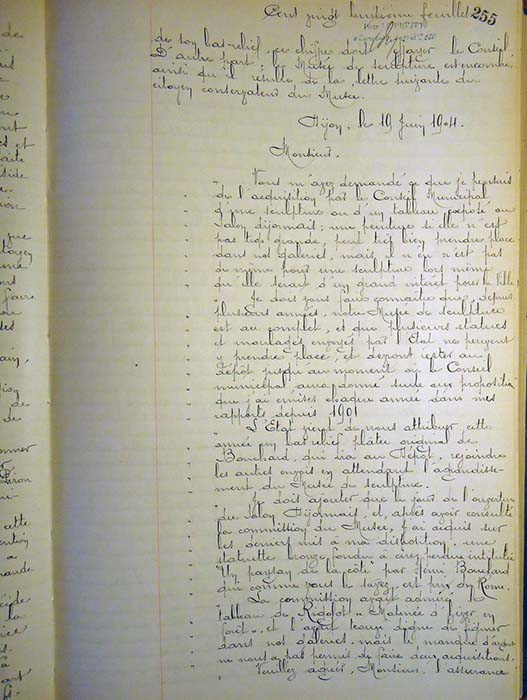 Cent vingt huitième feuillet 255
de son bas-relief, ces chiffres doit effrayer le Conseil.
D'autre part, le Musée de sculpture est encombré
ainsi qu'il résulte de la lettre suivante du
citoyen conservateur du Musée.
Dijon, le 19 Juin 1904.
Monsieur.
" Vous m'avez demandé ce que je pensais
" de l'acquisition par le Conseil Municipal
" d'une sculpture ou d'un tableau exposé au
" Salon dijonnais; une peinture si elle n'est
" pas trop grande, peut très bien prendre place
" dans nos Galeries, mais il n'en n'est pas
" de même pour une sculpture lors même
" qu'elle serait d'un grand intérêt pour la Ville.
" Je dois vous faire connaître que, depuis
" plusieurs années, notre Musée de Sculpture
" est au complet, et que plusieurs statues
" et moulages envoyés par l'Etat ne peuvent
" y prendre place, et devront rester au
" Dépôt jusqu'au moment où le Conseil
" municipal aura donné suite aux propositions
" que j'ai émises chaque année dans mes
" rapports depuis 1901
" L'Etat vient de nous attribuer cette
" année un bas relief plâtre original de
" Bouchard, qui ira au Dépôt, rejoindre
" les autres envois en attendant l'agrandisse-
" ment du Musée de Sculpture.
" Je dois ajouter que le jour de l'ouverture
" du Salon Dijonnais, et, après avoir consulté
" la commission du Musée, j'ai acquis sur
" les deniers mis à ma disposition, une
" statuette bronze fondu à cires perdues intitulée
" "Un paysan de la côte" par Henri Bouchard
" qui comme vous le savez, est prix de Rome.
" La commission avait admiré le
" tableau de Rigolot "Matinée d'hiver en
" forêt", et l'avait trouvé digne de figurer
" dans nos Galeries, mais le manque d'argent
" ne nous a pas permis de faire deux acquisitions.
" Veuillez agréer, Monsieur, l'assurance